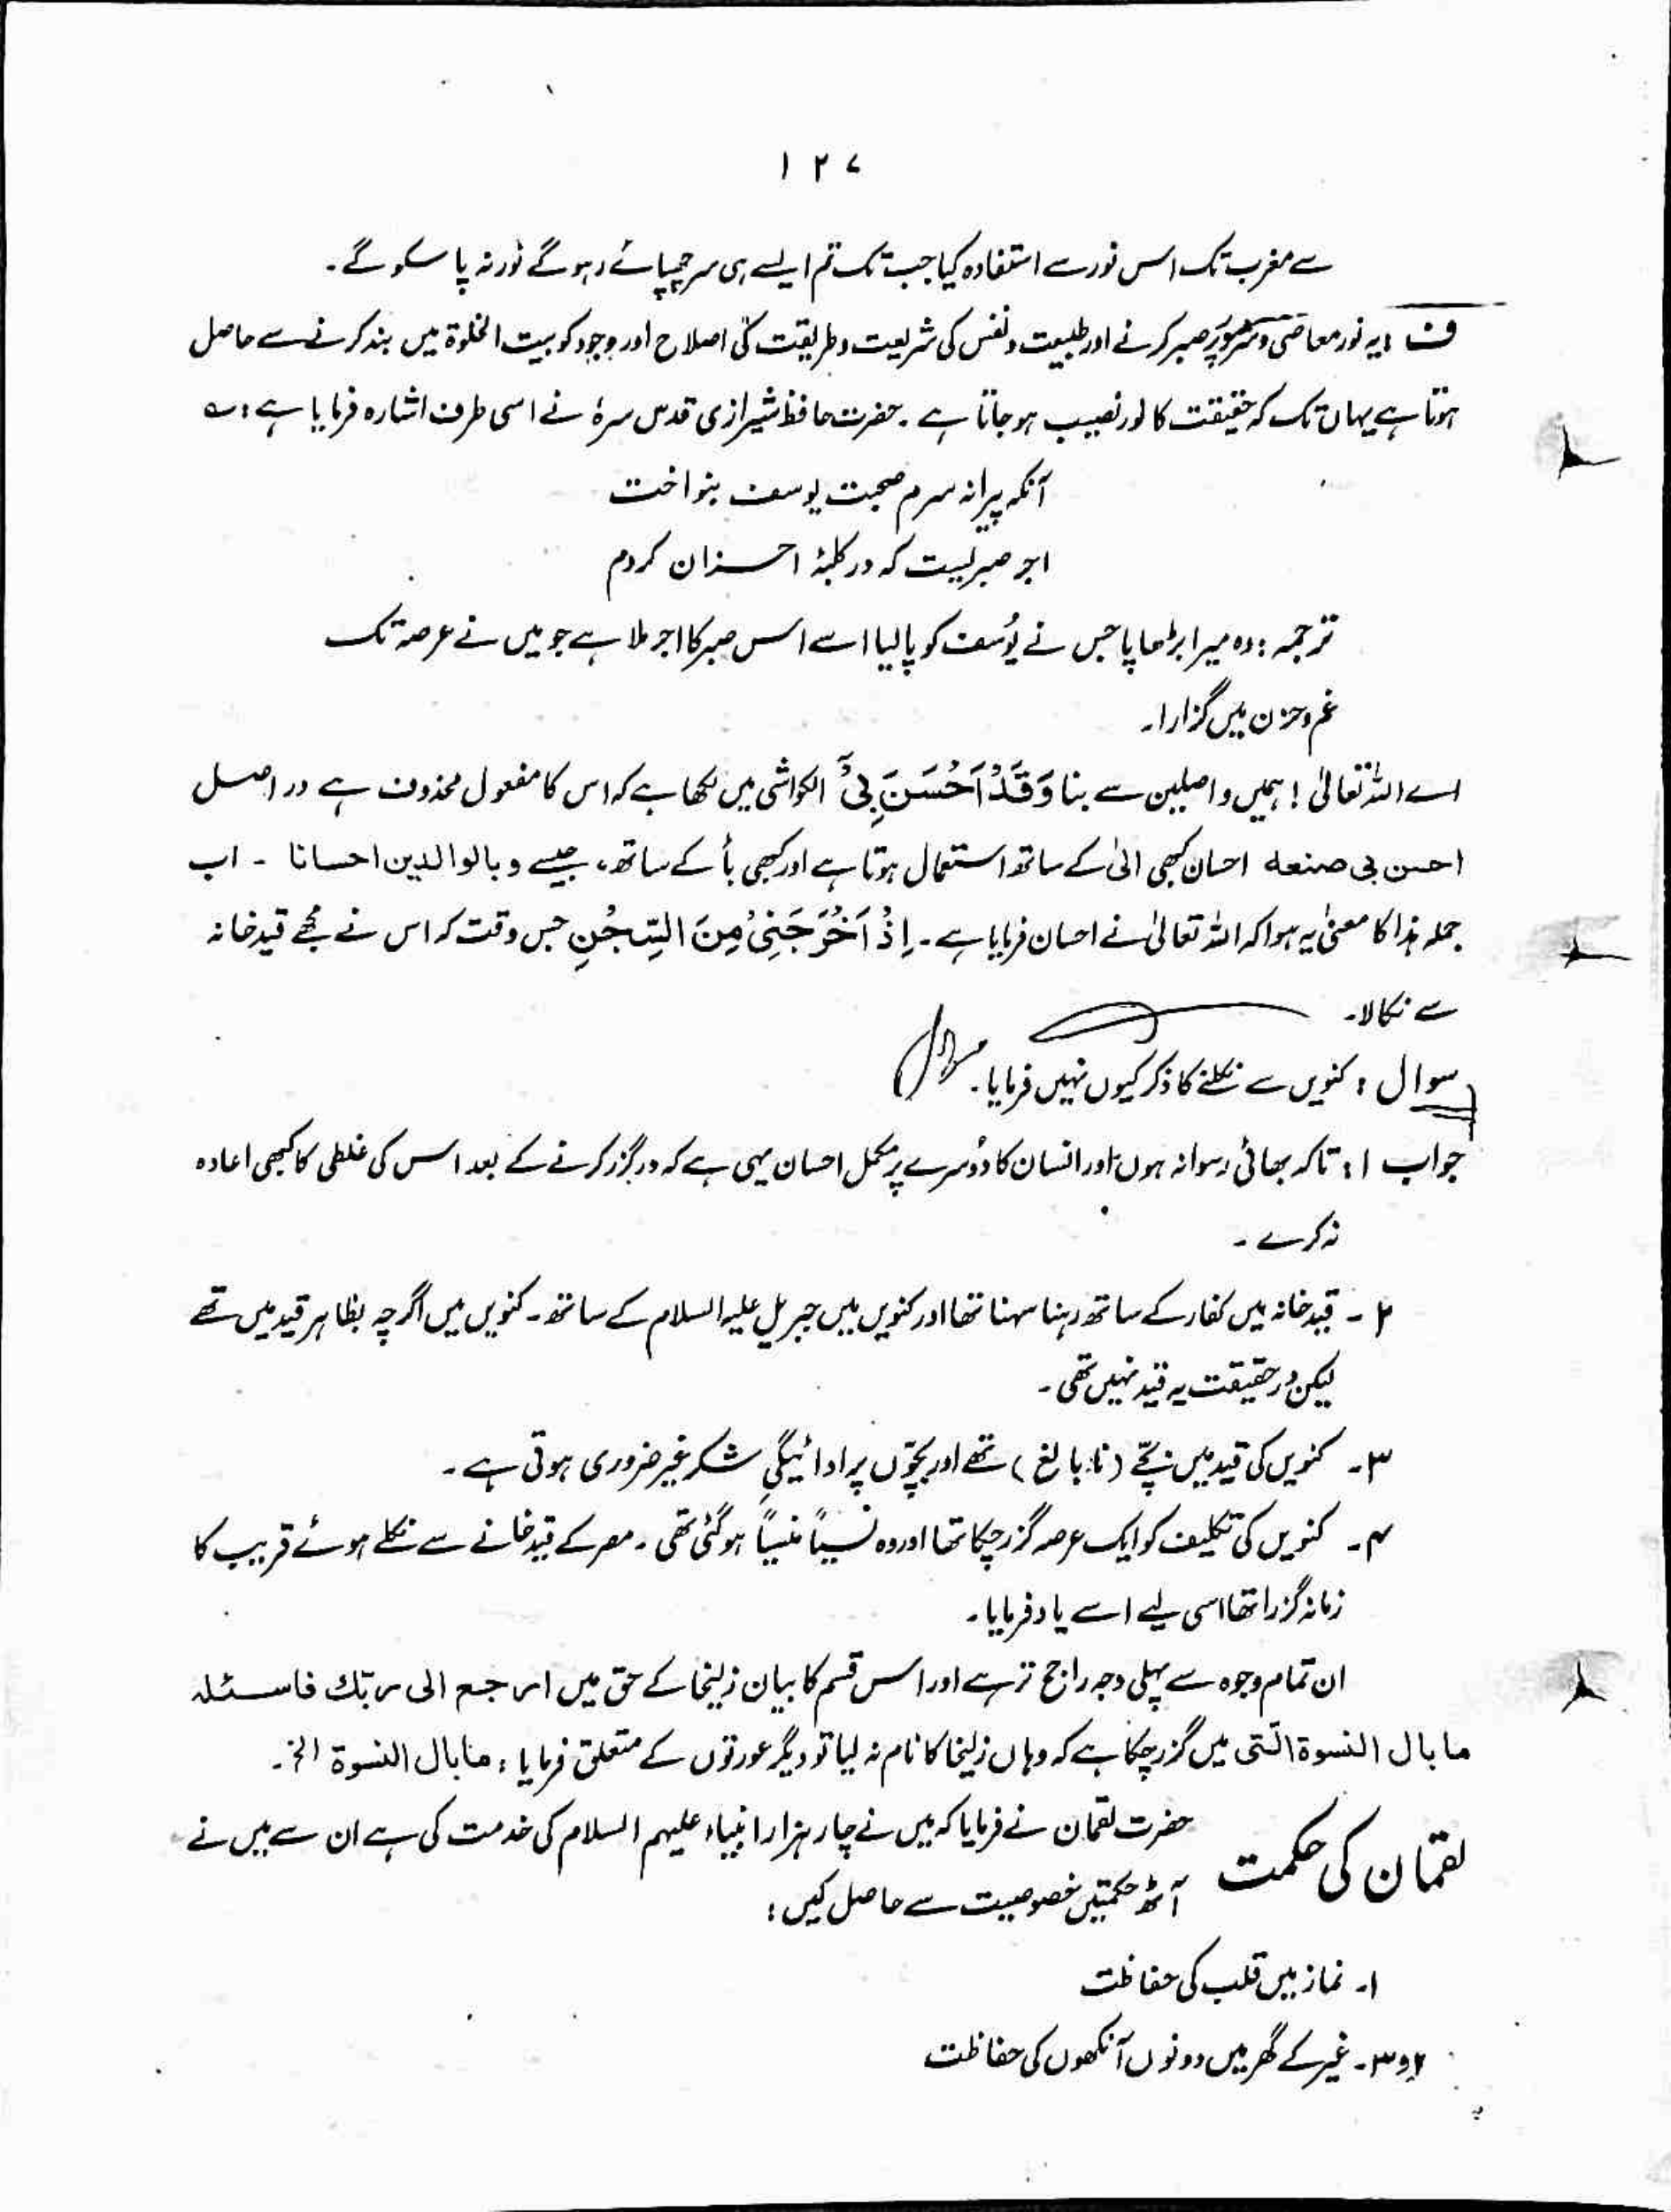 ۱۲۷
سے مغرب تک اس نور سے استفادہ کیا جب تک تم ایسے ہی سر چھپائے رہو گے نور نہ پا سکو گے۔
ف : یہ نور معاصی و شرور پر صبر کرنے اور طبیعت و نفس کی شریعت و طریقت کی اصلاح اور وجود کو بیت الخلوۃ میں بند کرنے سے حاصل
ہوتا ہے یہاں تک کہ حقیقت کا نور نصیب ہو جاتا ہے ۔ حضرت حافظ شیرازی قدس سرہٗ نے اسی طرف اشارہ فرمایا ہے : ؎
آنکہ پیرانہ سرم صحبت یوسف بنواخت
اجر صبریست کہ در کلبۂ احزان کردم
ترجمہ : وہ میرا بڑھاپا جس نے یُوسف کو پا لیا اسے اس صبر کا اجر ملا ہے جو میں نے عرصہ تک
غم و حزن میں گزارا۔
اے اللہ تعالیٰ ! ہمیں واصلین سے بنا وَقَدْ اَحْسَنَ بِیْٓ الکواشی میں لکھا ہے کہ اس کا مفعول محذوف ہے در اصل
احسن بی صنعہ احسان کبھی الیٰ کے ساتھ استعمال ہوتا ہے اور کبھی بأ کے ساتھ، جیسے وبالوالدین احسانا ۔ اب
جملہ ہذا کا معنیٰ یہ ہوا کہ اللہ تعالیٰ نے احسان فرمایا ہے ۔ اِذْ اَخْرَجَنِیْ مِنَ السِّجْنِ جس وقت کہ اس نے مجھے قیدخانہ
سے نکالا۔
سوال : کنویں سے نکلنے کا ذکر کیوں نہیں فرمایا۔
جواب ۱ : تاکہ بھائی رسوا نہ ہوں اور انسان کا دُوسرے پر مکمل احسان یہی ہے کہ درگزر کرنے کے بعد اس کی غلطی کا کبھی اعادہ
نہ کرے ۔
۲ ۔ قیدخانہ میں کفار کے ساتھ رہنا سہنا تھا اور کنویں میں جبریل علیہ السلام کے ساتھ ۔ کنویں میں اگرچہ بظاہر قید میں تھے
لیکن درحقیقت یہ قید نہیں تھی ۔
۳ ۔ کنویں کی قید میں بچّے (نابالغ) تھے اور بچّوں پر ادائیگیِ شکر غیر ضروری ہوتی ہے ۔
۴ ۔ کنویں کی تکلیف کو ایک عرصہ گزر چکا تھا اور وہ نسیاً منسیاً ہو گئی تھی ۔ مصر کے قیدخانے سے نکلے ہوئے قریب کا
زمانہ گزرا تھا اسی لیے اسے یاد فرمایا۔
ان تمام وجوہ سے پہلی وجہ راجح تر ہے اور اس قسم کا بیان زلیخا کے حق میں ارجع الی ربّك فاسئلہ
ما بال النسوۃ الّتی میں گزر چکا ہے کہ وہاں زلیخا کا نام نہ لیا تو دیگر عورتوں کے متعلق فرمایا : ما بال النسوۃ الخ۔
لقمان کی حکمت
حضرت لقمان نے فرمایا کہ میں نے چار ہزار انبیاء علیہم السلام کی خدمت کی ہے ان سے میں نے
آٹھ حکمتیں خصوصیت سے حاصل کیں :
۱۔ نماز میں قلب کی حفاظت
۲ و ۳۔ غیر کے گھر میں دونوں آنکھوں کی حفاظت